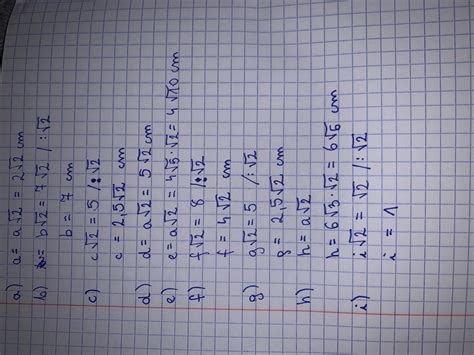 a) a = a√2 = 2√2 cm
b) = b√2 = 7√2 /:√2
b = 7 cm
c) c√2 = 5 /:√2
c = 2,5√2 cm
d) d = a√2 = 5√2 cm
e) e = a√2 = 4√5·√2 = 4√10 cm
f) f√2 = 8 /:√2
f = 4√2 cm
g) g√2 = 5 /:√2
g = 2,5√2 cm
h) h = a√2
h = 6√3·√2 = 6√6 cm
i) i√2 = √2 /:√2
i = 1